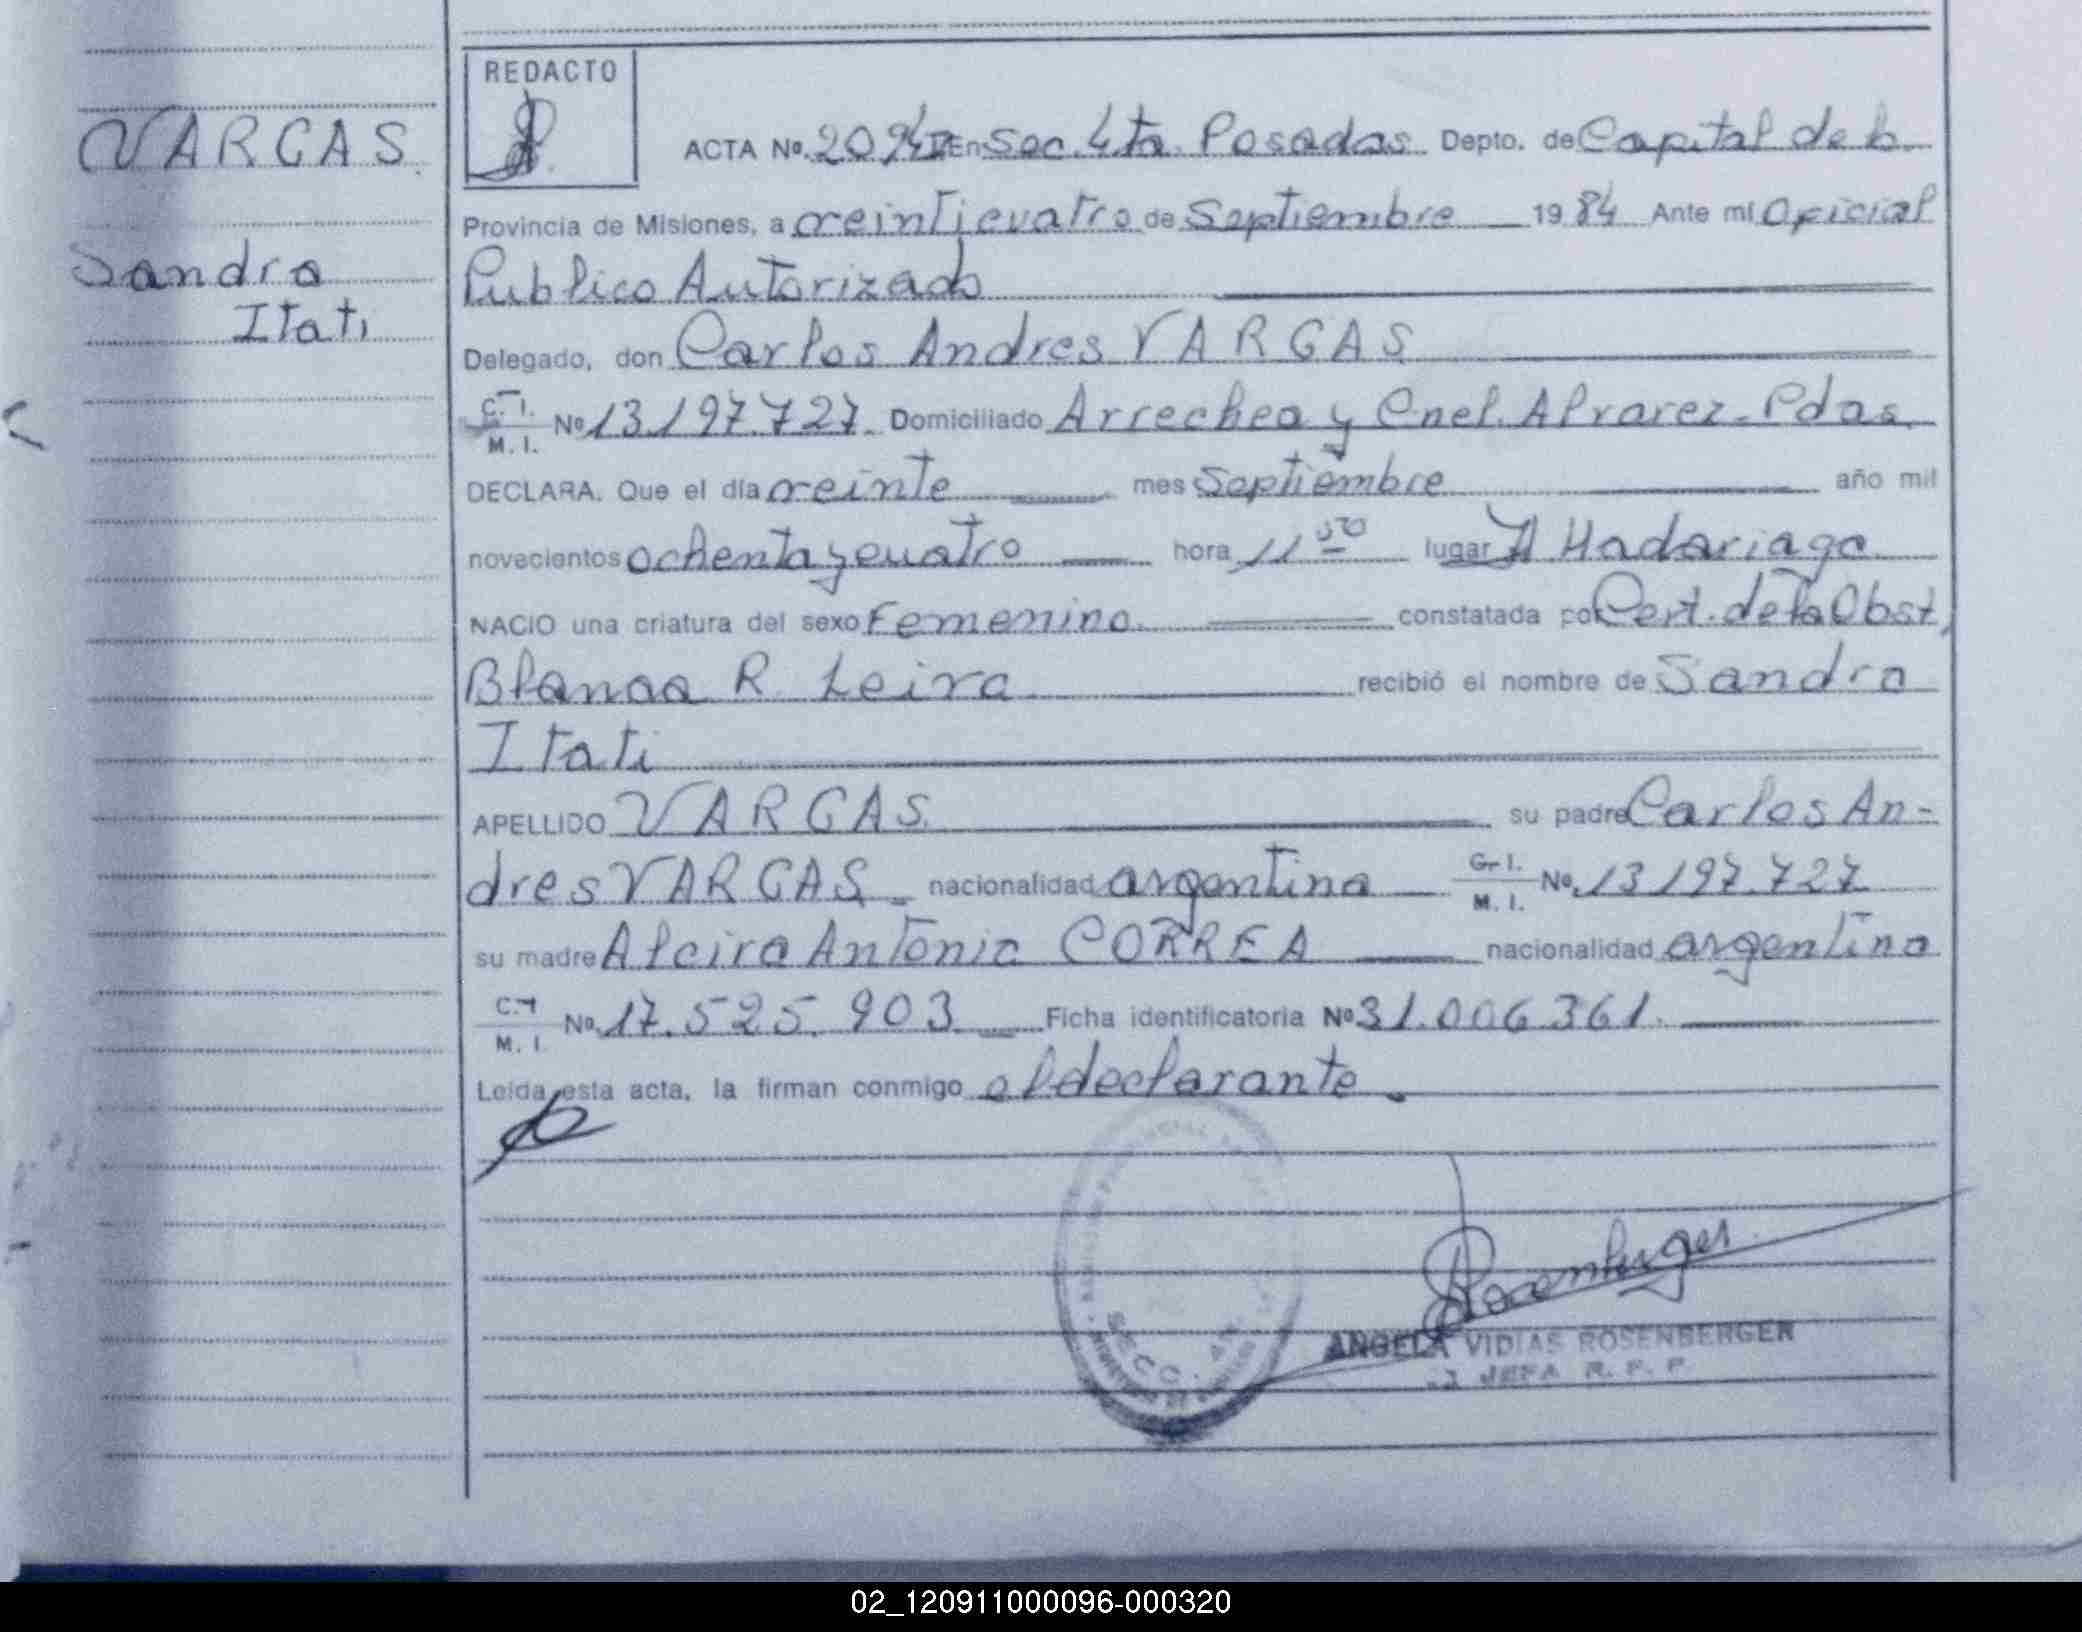 REDACTO
VARGAS
Sandra
Itati
ACTA Nº. 2094 En Sec. 4ta. Posadas Depto. de Capital de la
Provincia de Misiones, a veinticuatro de Septiembre 1984 Ante mí Oficial
Publico Autorizado
Delegado, don Carlos Andres VARGAS
C. I. M. I. Nº 13.197.727 Domiciliado Arrechea y Cnel. Alvarez - Pdas.
DECLARA. Que el día veinte mes Septiembre año mil
novecientos ochenta y cuatro hora 11 50 lugar H Madariaga
NACIO una criatura del sexo Femenino constatada por Cert. de la Obst.
Blanca R. Leiva recibió el nombre de Sandra
Itati
APELLIDO VARGAS su padre Carlos An-
dres VARGAS nacionalidad argentina C. I. M. I. Nº. 13.197.727
su madre Alcira Antonia CORREA nacionalidad argentina
C. I. M. I. Nº. 17.525.903 Ficha identificatoria Nº 31.006.361.
Leída esta acta, la firman conmigo el declarante.
Rosenberger
ANGELA VIDIAS ROSENBERGER
JEFA R. P. P.
SECC. 4ta.
02_120911000096-000320